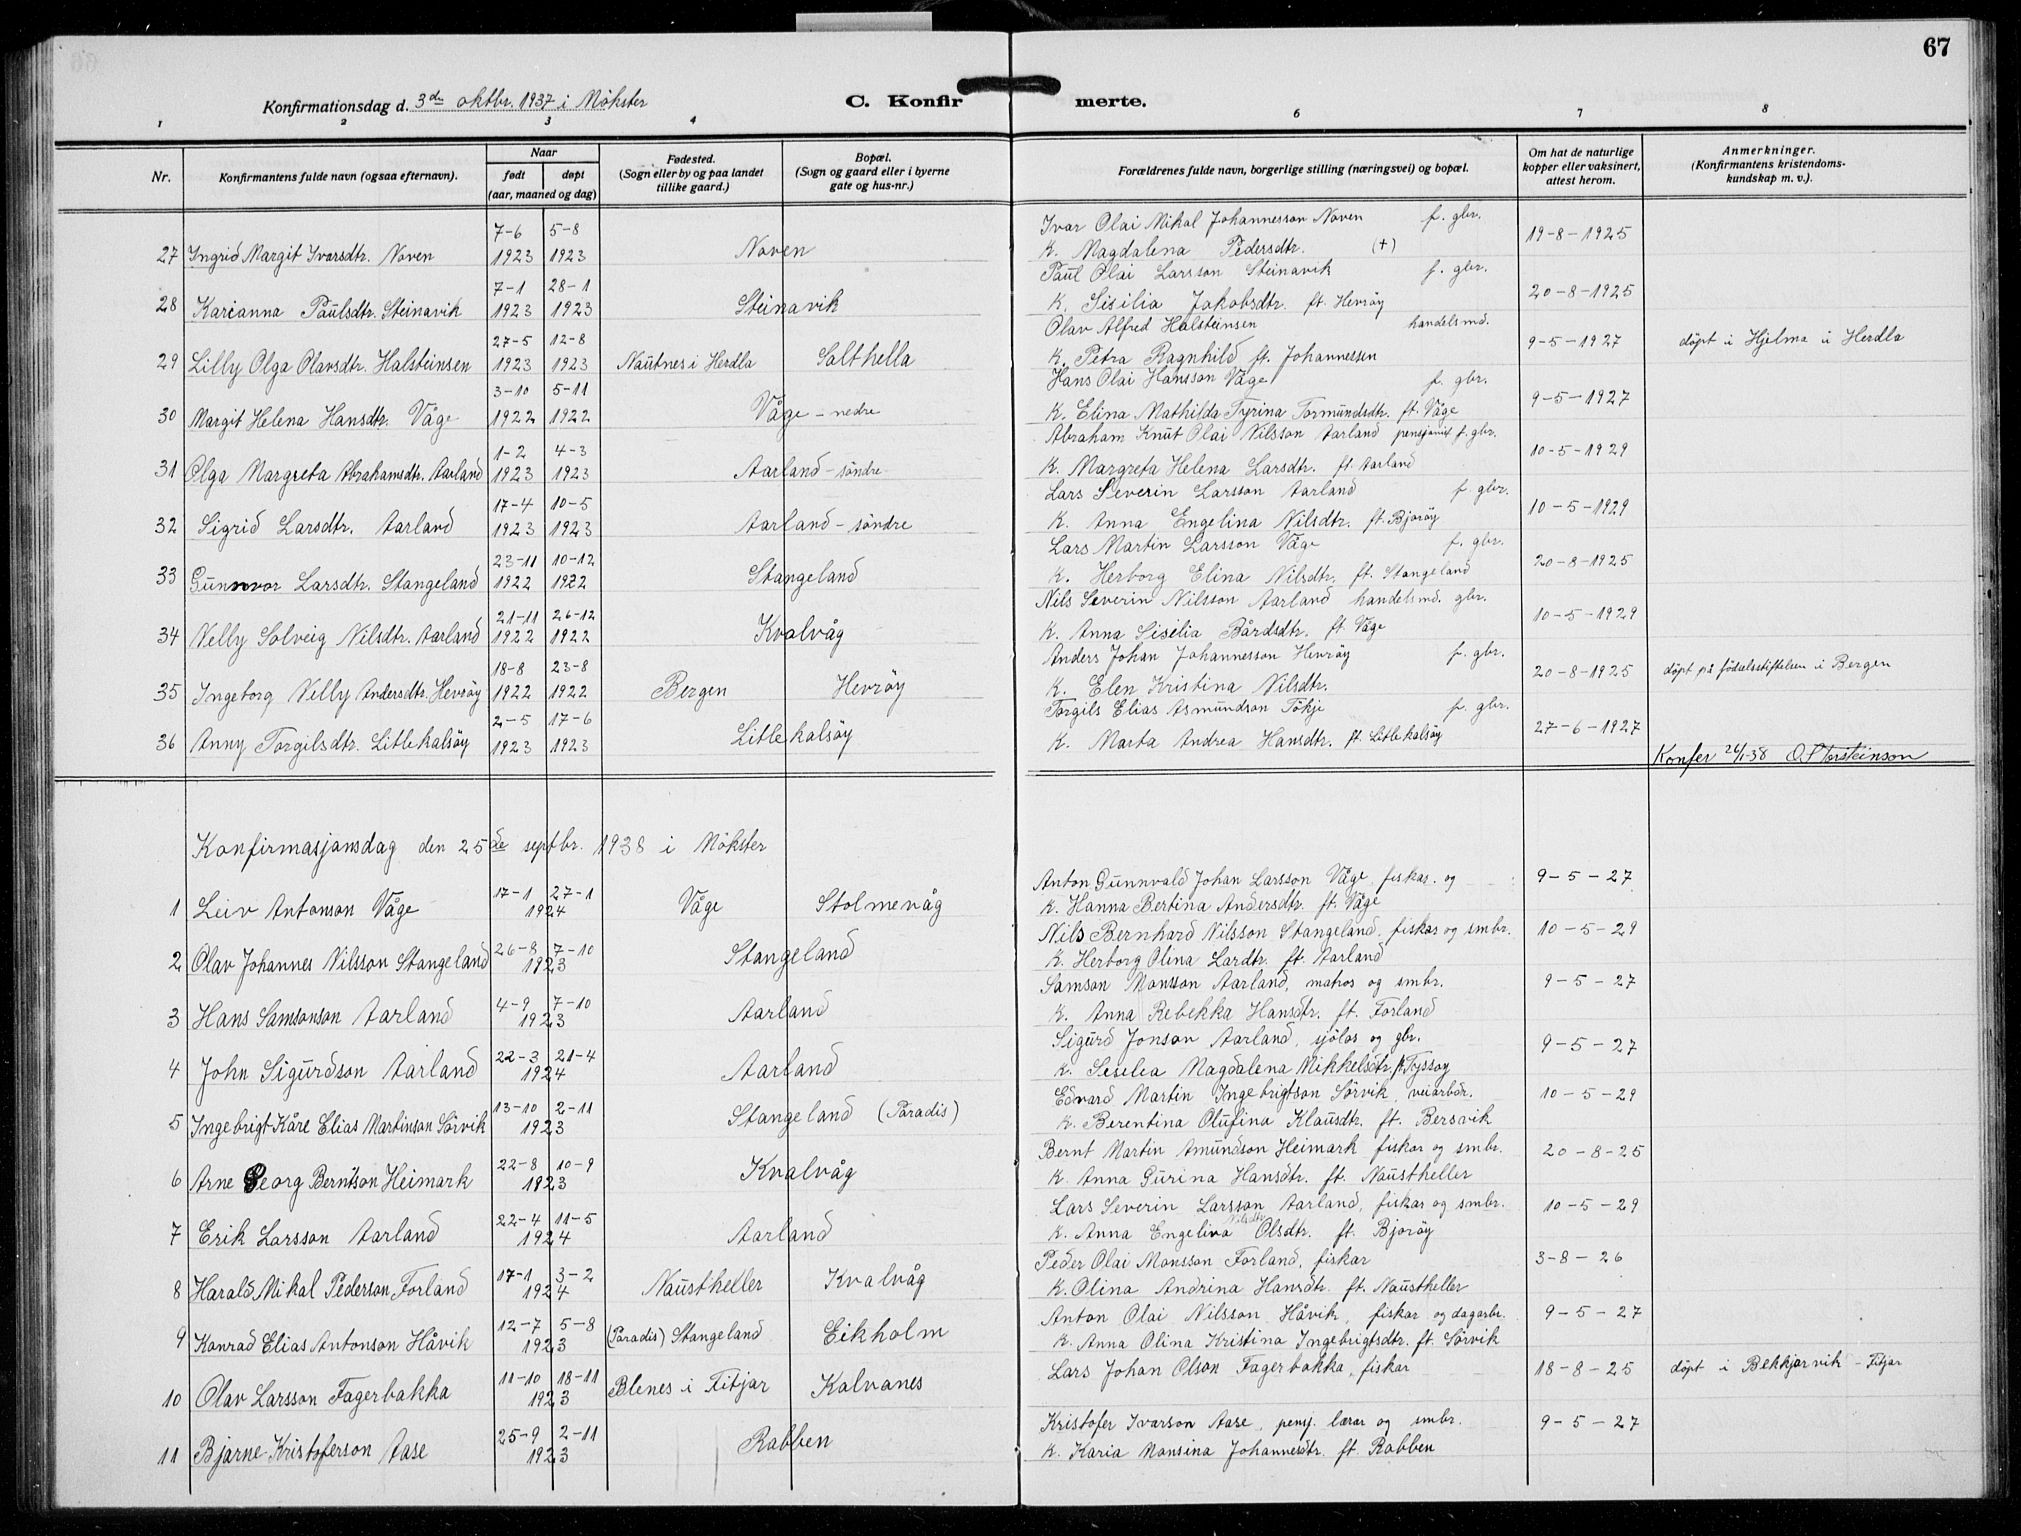 67
Konfirmationsdag d. 3de oktbr. 1937 i Mökster C. Konfirmerte.
1 2 3 4 6 7 8
Nr. Konfirmantens fulde navn (ogsaa efternavn). Naar født døpt (aar, maaned og dag) Fødested. (Sogn eller by og paa landet tillike gaard.) Bopæl. (Sogn og gaard eller i byerne gate og hus-nr.) Forældrenes fulde navn, borgerlige stilling (næringsvei) og bopæl. Om hat de naturlige kopper eller vaksinert, attest herom. Anmerkninger. (Konfirmantens kristendomskundskap m. v.).
7-6 5-8 Ivar Olai Mikal Johannesson Noven f. gbr.
27 Ingrid Margit Ivarsdtr. Noven 1923 1923 Noven K. Magdalena Pedersdtr. (+) 19-8-1925
7-1 28-1 Paul Olai Larsson Steinavik f. gbr.
28 Karianna Paulsdtr. Steinavik 1923 1923 Steinavik K. Sisilia Jakobsdtr. ft. Hevröy 20-8-1925
27-5 12-8 Olav Alfred Halsteinsen handelsmd.
29 Lilly Olga Olavsdtr. Halsteinsen 1923 1923 Nautnes i Herdla Salthella K. Petra Ragnhild ft. Johannessen 9-5-1927 döpt i Hjelma i Herdla
3-10 5-11 Hans Olai Hansson Våge f. gbr.
30 Margit Helena Hansdtr. Våge 1922 1922 Våge - nedre K. Elina Mathilda Tyrina Tormundsdtr. ft. Våge 9-5-1927
1-2 4-3 Abraham Knut Olai Nilsson Aarland pensjonist f. gbr.
31 Olga Margreta Abrahamsdtr. Aarland 1923 1923 Aarland - söndre K. Margreta Helena Larsdtr. ft. Aarland 10-5-1929
17-4 10-5 Lars Severin Larsson Aarland f. gbr.
32 Sigrid Larsdtr. Aarland 1923 1923 Aarland - söndre K. Anna Engelina Nilsdtr. ft. Bjoröy 10-5-1929
23-11 10-12 Lars Martin Larsson Våge f. gbr.
33 Gunnvor Larsdtr. Stangeland 1922 1922 Stangeland K. Herborg Elina Nilsdtr. ft. Stangeland 20-8-1925
21-11 26-12 Nils Severin Nilsson Aarland handelsmd. gbr.
34 Nelly Solveig Nilsdtr. Aarland 1922 1922 Kvalvåg K. Anna Sisilia Bårdsdtr. ft. Våge 10-5-1929
18-8 23-8 Anders Johan Johannesson Hevröy f. gbr.
35 Ingeborg Nelly Andersdtr. Hevröy 1922 1922 Bergen Hevröy K. Elen Kristina Nilsdtr. 20-8-1925 döpt på födselsstiftelsen i Bergen
2-5 17-6 Torgils Elias Asmundson Tökje f. gbr.
36 Anny Torgilsdtr. Litlekalsöy 1923 1923 Litlekalsöy K. Marta Andrea Hansdtr. ft. Litlekalsöy 27-6-1927
Konfer 26/1-38 O. Torsteinson
Konfirmasjonsdag den 25de septbr. 1938 i Mökster
17-1 27-1 Anton Gunnvald Johan Larsson Våge, fiskar. og 9-5-27
1 Leiv Antonson Våge 1924 Våge Stolmevåg K. Hanna Bertina Andersdtr. ft. Våge
26-8 7-10 Nils Bernhard Nilsson Stangeland, fiskar og smbr. 10-5-29
2 Olav Johannes Nilsson Stangeland 1923 Stangeland K. Herborg Olina Lardtr. ft. Aarland
4-9 7-10 Samson Monsson Aarland, matros og smbr. 9-5-27
3 Hans Samsonson Aarland 1923 Aarland K. Anna Rebekka Hansdtr. ft. Forland
22-3 21-4 Sigurd Jonson Aarland, sjölos og gbr. 9-5-27
4 John Sigurdson Aarland 1924 Aarland K. Sesilea Magdalena Mikkelsdtr. ft. Tyssøy
13-10 2-11 Edvard Martin Ingebrigtson Sörvik, veiarbdr. 10-5-29
5 Ingebrigt Kåre Elias Martinson Sörvik 1923 Stangeland (Paradis) K. Berentina Olufina Klausdtr. ft. Bersvik
22-8 10-9 Bernt Martin Amundson Heimark fiskar og smbr. 20-8-25
6 Arne Georg Berntson Heimark 1923 Kvalvåg K. Anna Gurina Hansdtr. ft. Naustheller
22-4 11-5 Lars Severin Larsson Aarland, fiskar og smbr. 10-5-29
7 Erik Larsson Aarland 1924 Aarland K. Anna Engelina Nilsdtr Olsdtr. ft. Bjoröy
17-1 3-2 Peder Olai Monsson Forland, fiskar 3-8-26
8 Harald Mikal Pederson Forland 1924 Naustheller Kvalvåg K. Olina Andrina Hansdtr. ft. Naustheller
12-7 5-8 Anton Olai Nilsson Håvik, fiskar og dagarbr. 9-5-27
9 Konrad Elias Antonson Håvik 1923 (Paradis) Stangeland Eikholm K. Anna Olina Kristina Ingebrigtsdtr. ft. Sörvik
11-10 18-11 Lars Johan Olson Fagerbakka, fiskar 18-8-25 döpt i Bekkjarvik - Fitjar
10 Olav Larsson Fagerbakka 1923 Blenes i Fitjar Kalvanes
25-9 2-11 Kristofer Ivarson Aase, pensj. lærar og smbr. 9-5-27
11 Bjarne Kristoferson Aase 1923 Rabben K. Karia Monsina Johannesdtr. ft. Rabben